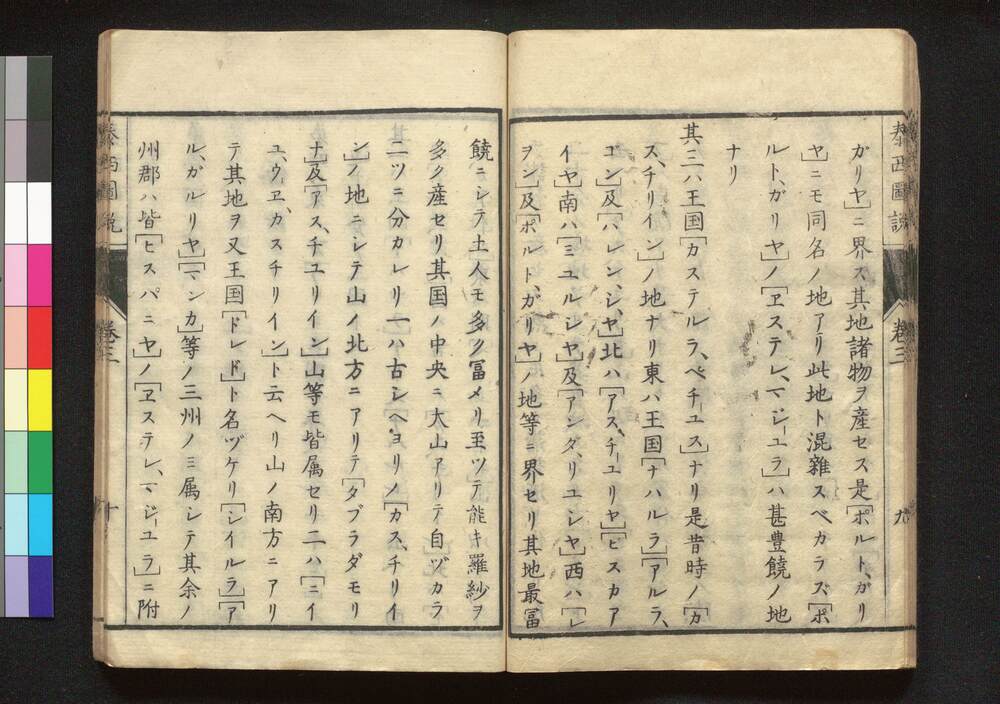 泰西圖説
巻三
九
ガリヤ]ニ界ス其地諸物ヲ産セス是[ポルト、ガリ
ヤ]ニモ同名ノ地アリ此地ト混雑スベカラズ[ポ
ルト、ガリヤ]ノ[ヱステレ、マジーユラ]ハ甚豊饒ノ地
ナリ
其三ハ王国[カステルラ、ペチユス]ナリ是昔時ノ[カ
ス、チリイン]ノ地ナリ東ハ王国[ナハルラ][アルラ、
ゴン]及[ハレン、シヤ]北ハ[アスチーユリヤ][ビスカア
イヤ]南ハ[ミユルシヤ]及[アンダ、リユシヤ]西ハ[レ
ヲン]及[ポルト、ガリヤ]ノ地等ニ界セリ其地最冨
饒ニシテ土人モ多ク冨メリ至ツテ能キ羅紗ヲ
多ク産セリ其国ノ中央ニ大山アリテ自ヅカラ
二ツニ分カレリ一ハ古シヘヨリノ[カス、チリイ
ン]ノ地ニシテ山ノ北方ニアリテ[タブラダモリ
ナ]及[アス、チユリイン]山等モ皆属セリ二ハ[ニイ
ユ、ウヱ、カスチリイン]ト云ヘリ山ノ南方ニアリ
テ其地ヲ又王国[ドレドド]ト名ヅケリ[シイルラ][ア
ル、ガルリヤ][マンカ]等ノ三州ノミ属シテ其余ノ
州郡ハ皆[ヒスパニヤ]ノ[ヱステレ、マジーユラ]ニ附
泰西圖説
巻三
十